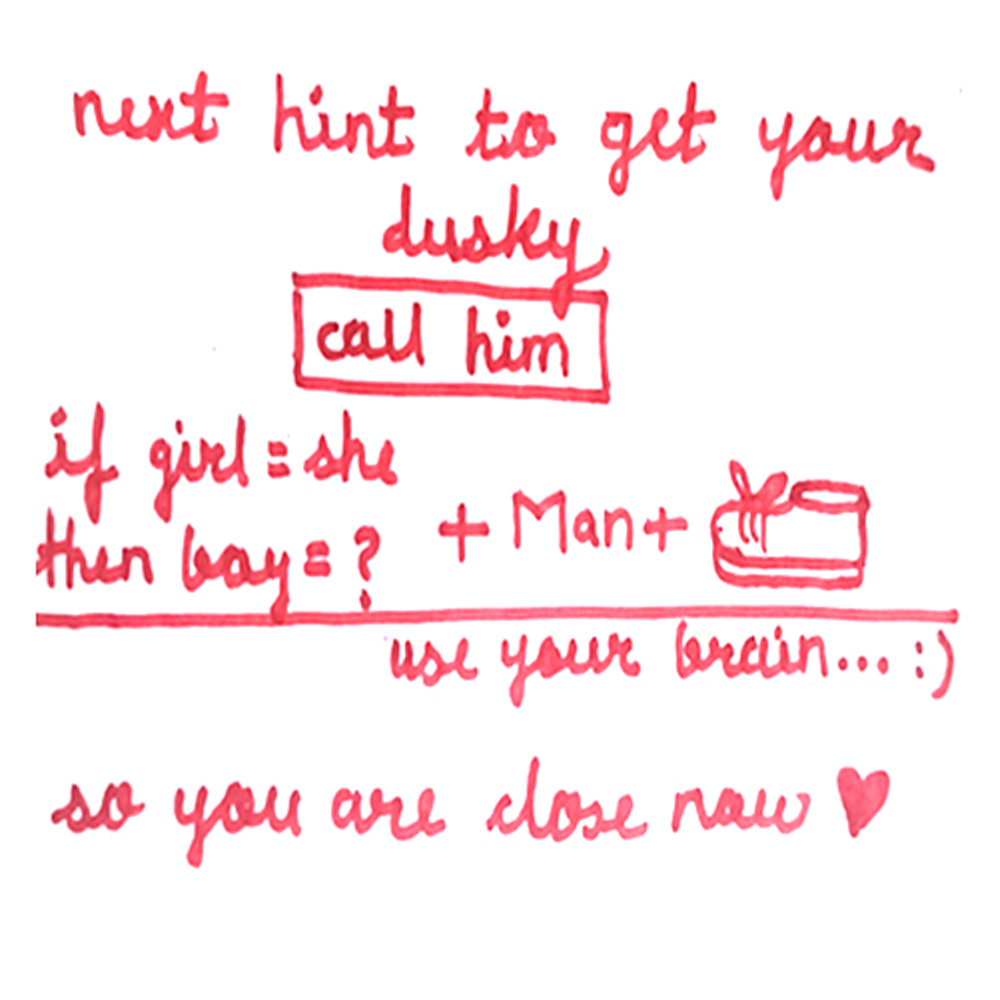 next hint to get your
dusky
call him
if girl = she
then boy = ? + Man +
use your brain... :)
so you are close now ♥